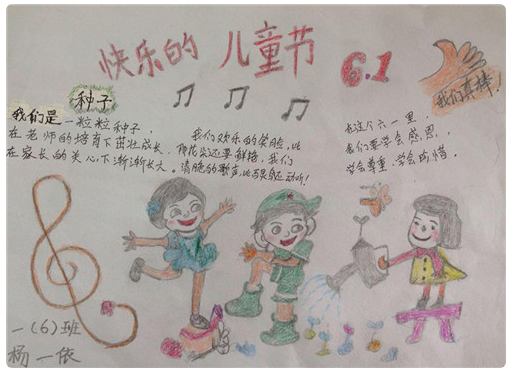 快乐的 儿童节
6.1
我们真棒！
种子
我们是一粒粒种子，
在老师的培育下茁壮成长，
在家长的关心下渐渐长大。
我们欢乐的笑脸，比
花朵还要鲜艳，我们
清脆的歌声，比百灵鸟还动听！
在这个六一里，
我们要学会感恩，
学会尊重，学会珍惜。
一(6)班
杨一依